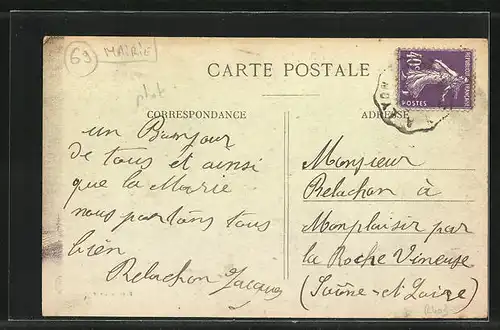 63
MAIRIE
CARTE POSTALE
40c
REPUBLIQUE FRANÇAISE
POSTES
CORRESPONDANCE
ADRESSE
un Bonjour
de tous et ainsi
que la Marie
nous partons tous
bien
Relachon Jacques
Monsieur
Relachon à
Monplaisir par
la Roche Vineuse
(Saône-et-Loire)